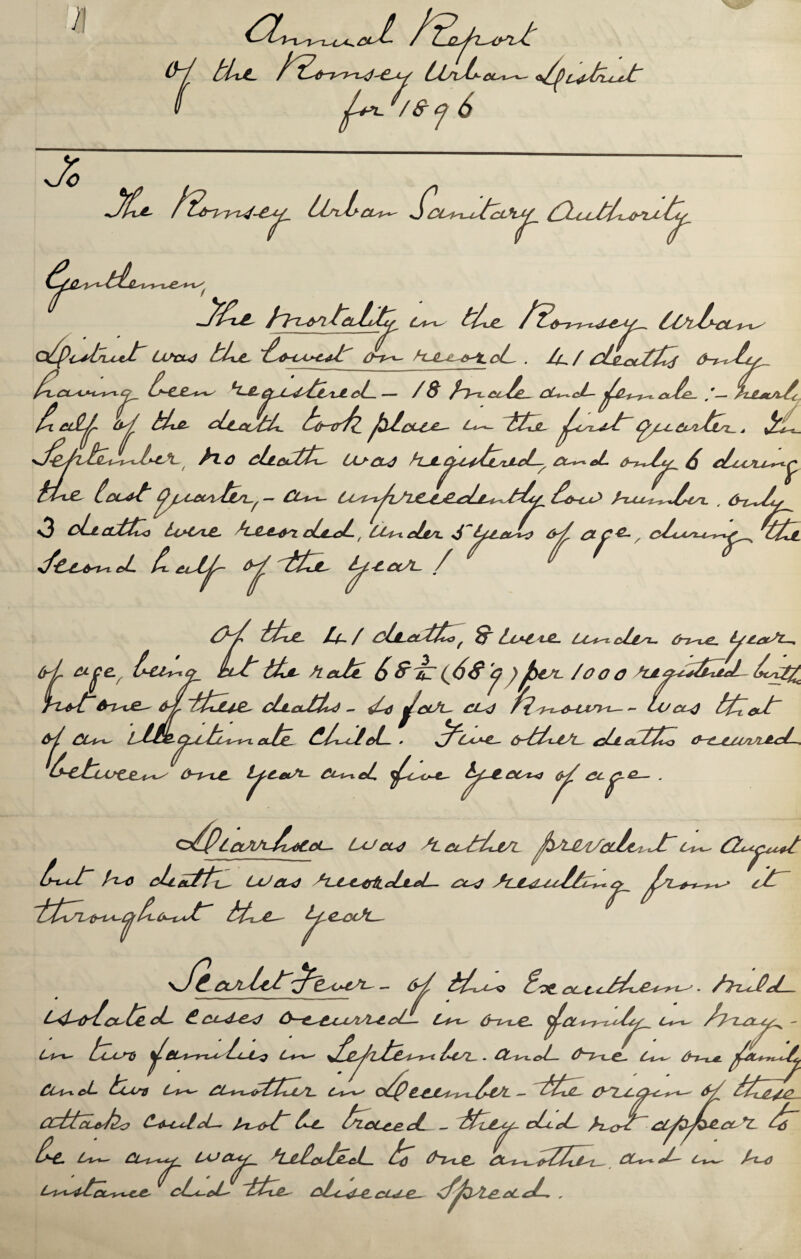 Annual Report
Of the Romsey Urban District
for 1896
To
The Romsey Urban Sanitary Authority
Gentlemen,
The mortality in the Romsey Urban
District was the lowest on record. 41 deaths only
having been registered — 18 male and female :— nearly
half of the death took place in the first quarter. In
September, no death was registered, and only 6 during
the last quarter, – an unprecedentedly low number. Only
3 deaths were recorded, under 5 years of age, during the
second half of the year!
Of the 41 deaths, 8 were under one year
of age, being at the rate 68 (68) per 1000 registered births
not one of these deaths – so far as known – was that
of an illegitimate Child. Five other deaths occurred
between one year and five years of age.
Diarrhœa was rather prevalent in August
but no death was recorded as resulting from it
throughout the year
Scarlet Fever – of this Exanthem. mild
isolated cases occurred in one family in May –
in two families in September. and one in one family
and two in another in December – the origin of these
attacks could not be traced – they did not appear to
be in any way related to one another, and in no
instance did the disease spread.